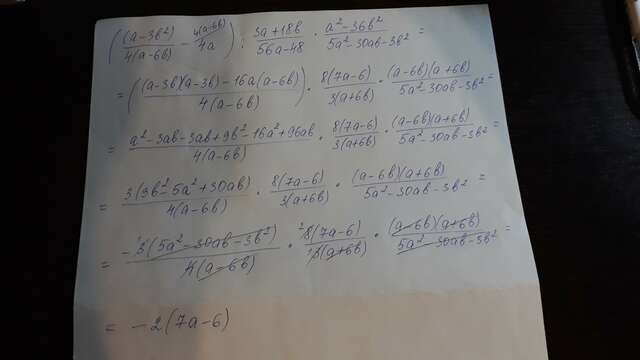 ((a-3b²)/4(a-6b) - 4(a-6b)/4a) : 3a+18b/56a-48 · a²-36b²/5a²-30ab-3b² =
= ((a-3b)(a-3b)-16a(a-6b)/4(a-6b)) · 8(7a-6)/3(a+6b) · (a-6b)(a+6b)/5a²-30ab-3b² =
= a²-3ab-3ab+9b²-16a²+96ab/4(a-6b) · 8(7a-6)/3(a+6b) · (a-6b)(a+6b)/5a²-30ab-3b² =
= 3(3b²-5a²+30ab)/4(a-6b) · 8(7a-6)/3(a+6b) · (a-6b)(a+6b)/5a²-30ab-3b² =
= -¹3(5a²-30ab-3b²)/4(a-6b) · ²8(7a-6)/¹3(a+6b) · (a-6b)(a+6b)/5a²-30ab-3b² =
= -2(7a-6)